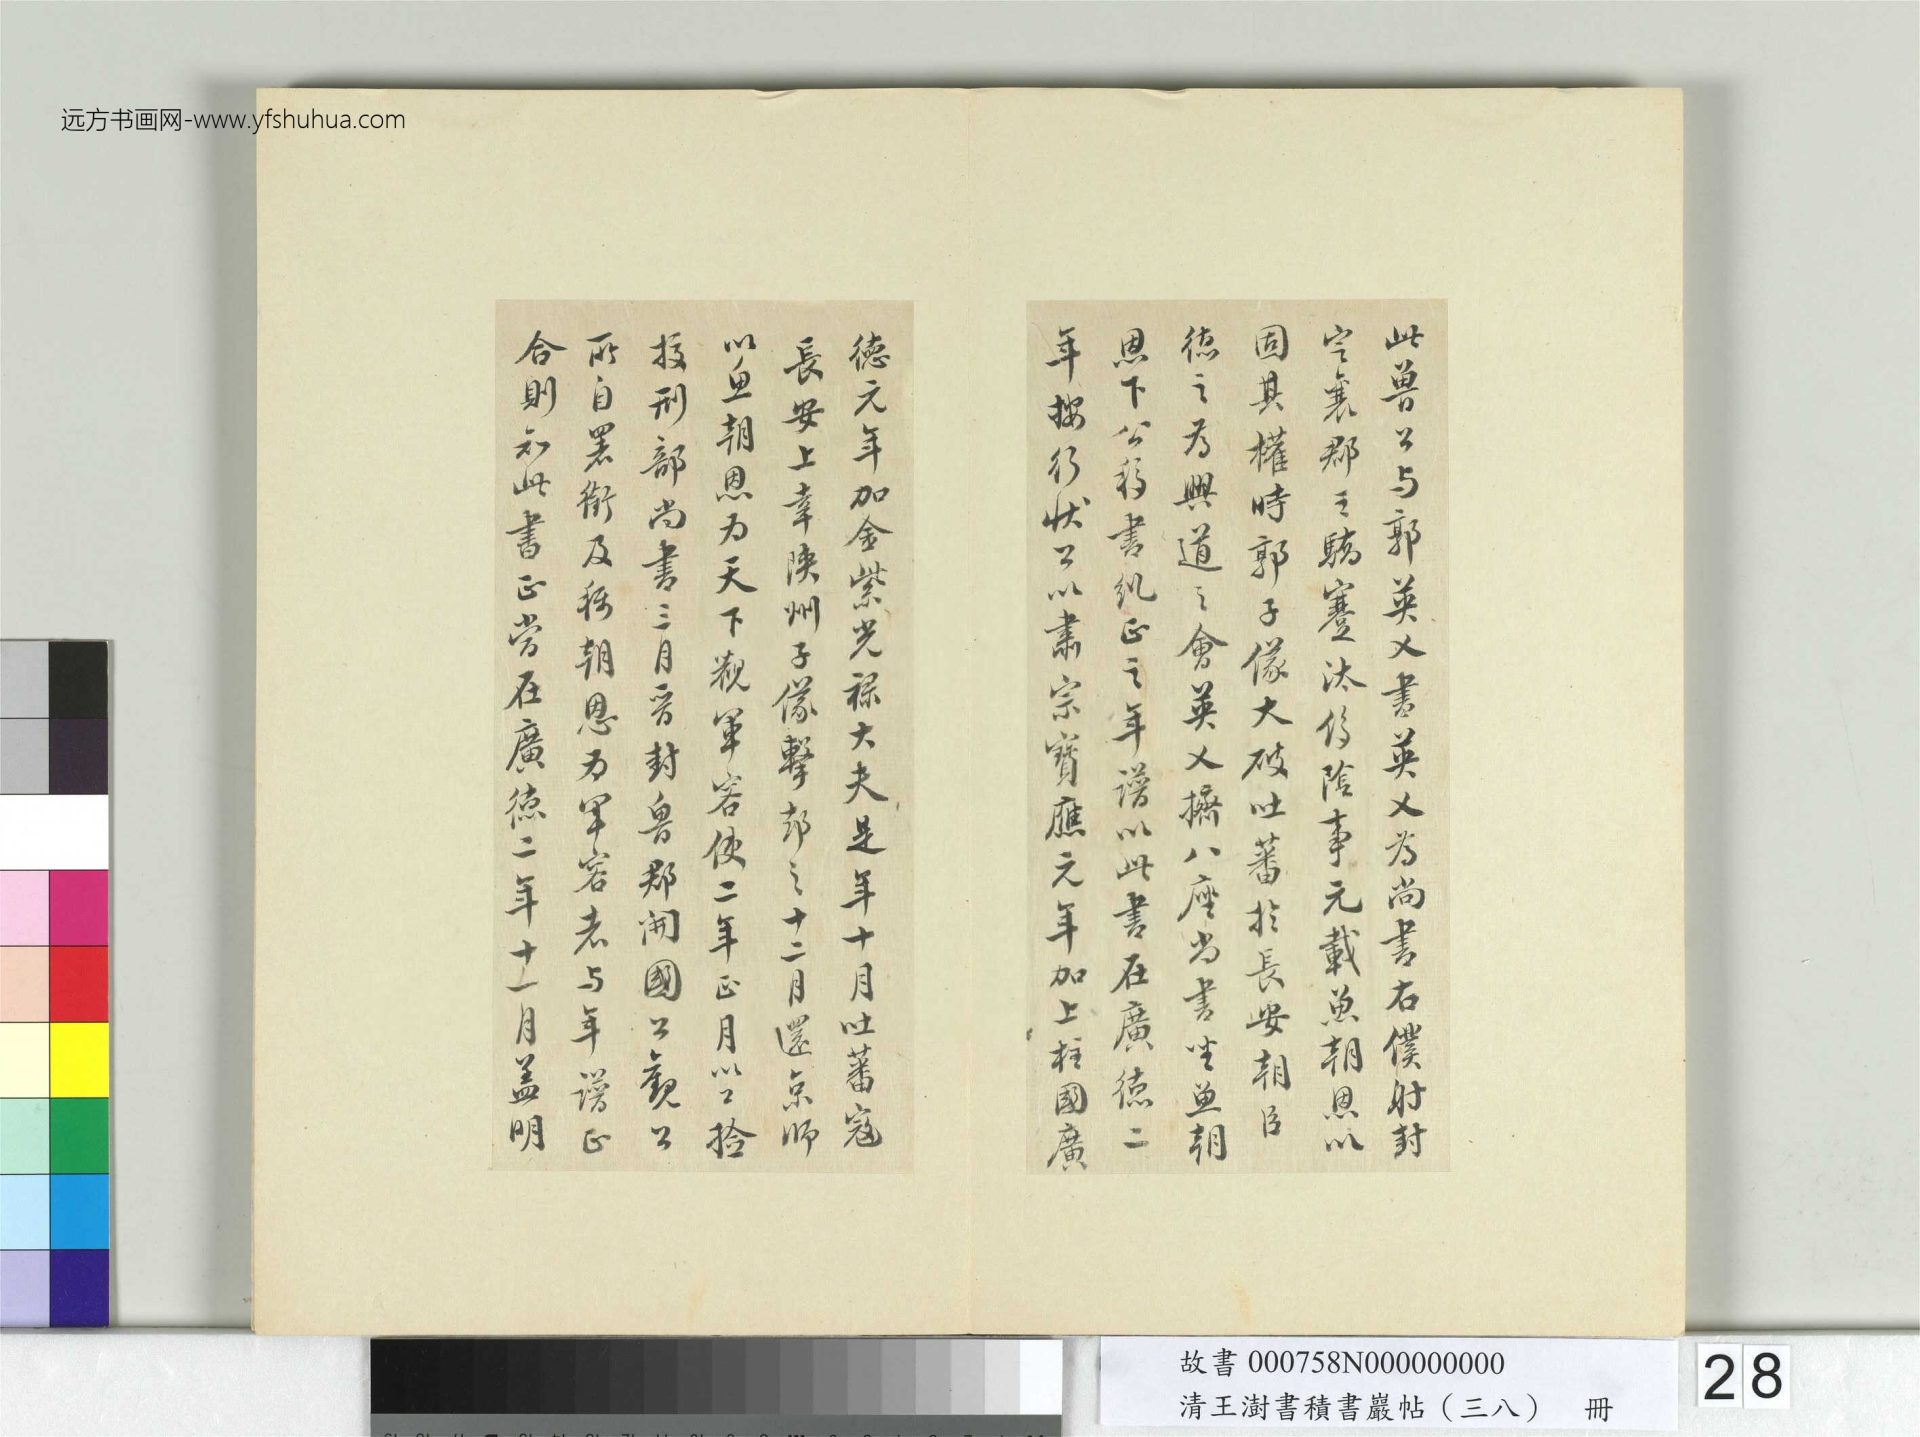 远方书画网-www.yfshuhua.com
此魯公与郭英乂書英乂为尚書右僕射封
定襄郡王驕蹇汰侈陰事元載魚朝恩以
固其權時郭子儀大破吐蕃於長安朝臣
德之为興道之會英乂擠八座尚書坐魚朝
恩下公移書糾正之年譜以此書在廣德二
年按行状公以肅宗寶應元年加上柱國廣
德元年加金紫光禄大夫是年十月吐蕃寇
長安上幸陝州子儀擊却之十二月還京師
以魚朝恩为天下觀軍容使二年正月以公檢
挍刑部尚書三月晋封魯郡開國公觀公
所自署銜及稱朝恩为军容者与年譜正
合則知此書正當在廣德二年十一月盖明
故書000758N000000000
清王澍書積書巖帖（三八） 冊
28